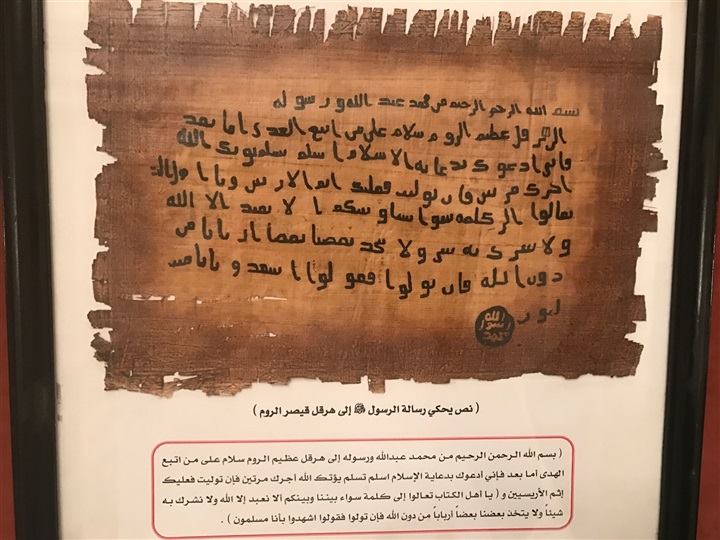 بسم الله الرحمن الرحيم من محمد عبد الله و رسوله
الى هرقل عظيم الروم سلام على من اتبع الهدى اما بعد
فانى ادعوك بدعاية الاسلام اسلم تسلم يوتك الله
اجرك مرتين فان توليت فعليك اثم الاريسين و يا اهل
تعالوا الى كلمة سوا بيننا وبينكم ا لا نعبد الا الله
و لا نشرك به ولا يتخذ بعضنا بعضا اربابا من
دون الله فان تولوا فقولوا ا شهدو بانا مس
لمون
الله
رسول
محمد
( نص يحكي رسالة الرسول ﷺ إلى هرقل قيصر الروم )
( بسم الله الرحمن الرحيم من محمد عبدالله ورسوله إلى هرقل عظيم الروم سلام على من اتبع
الهدى أما بعد فإني أدعوك بدعاية الإسلام اسلم تسلم يؤتك الله أجرك مرتين فإن توليت فعليك
إثم الأريسيين و ( يا أهل الكتاب تعالوا إلى كلمة سواء بيننا وبينكم ألا نعبد إلا الله ولا نشرك به
شيئاً ولا يتخذ بعضنا بعضاً أرباباً من دون الله فإن تولوا فقولوا اشهدوا بأنا مسلمون ) .